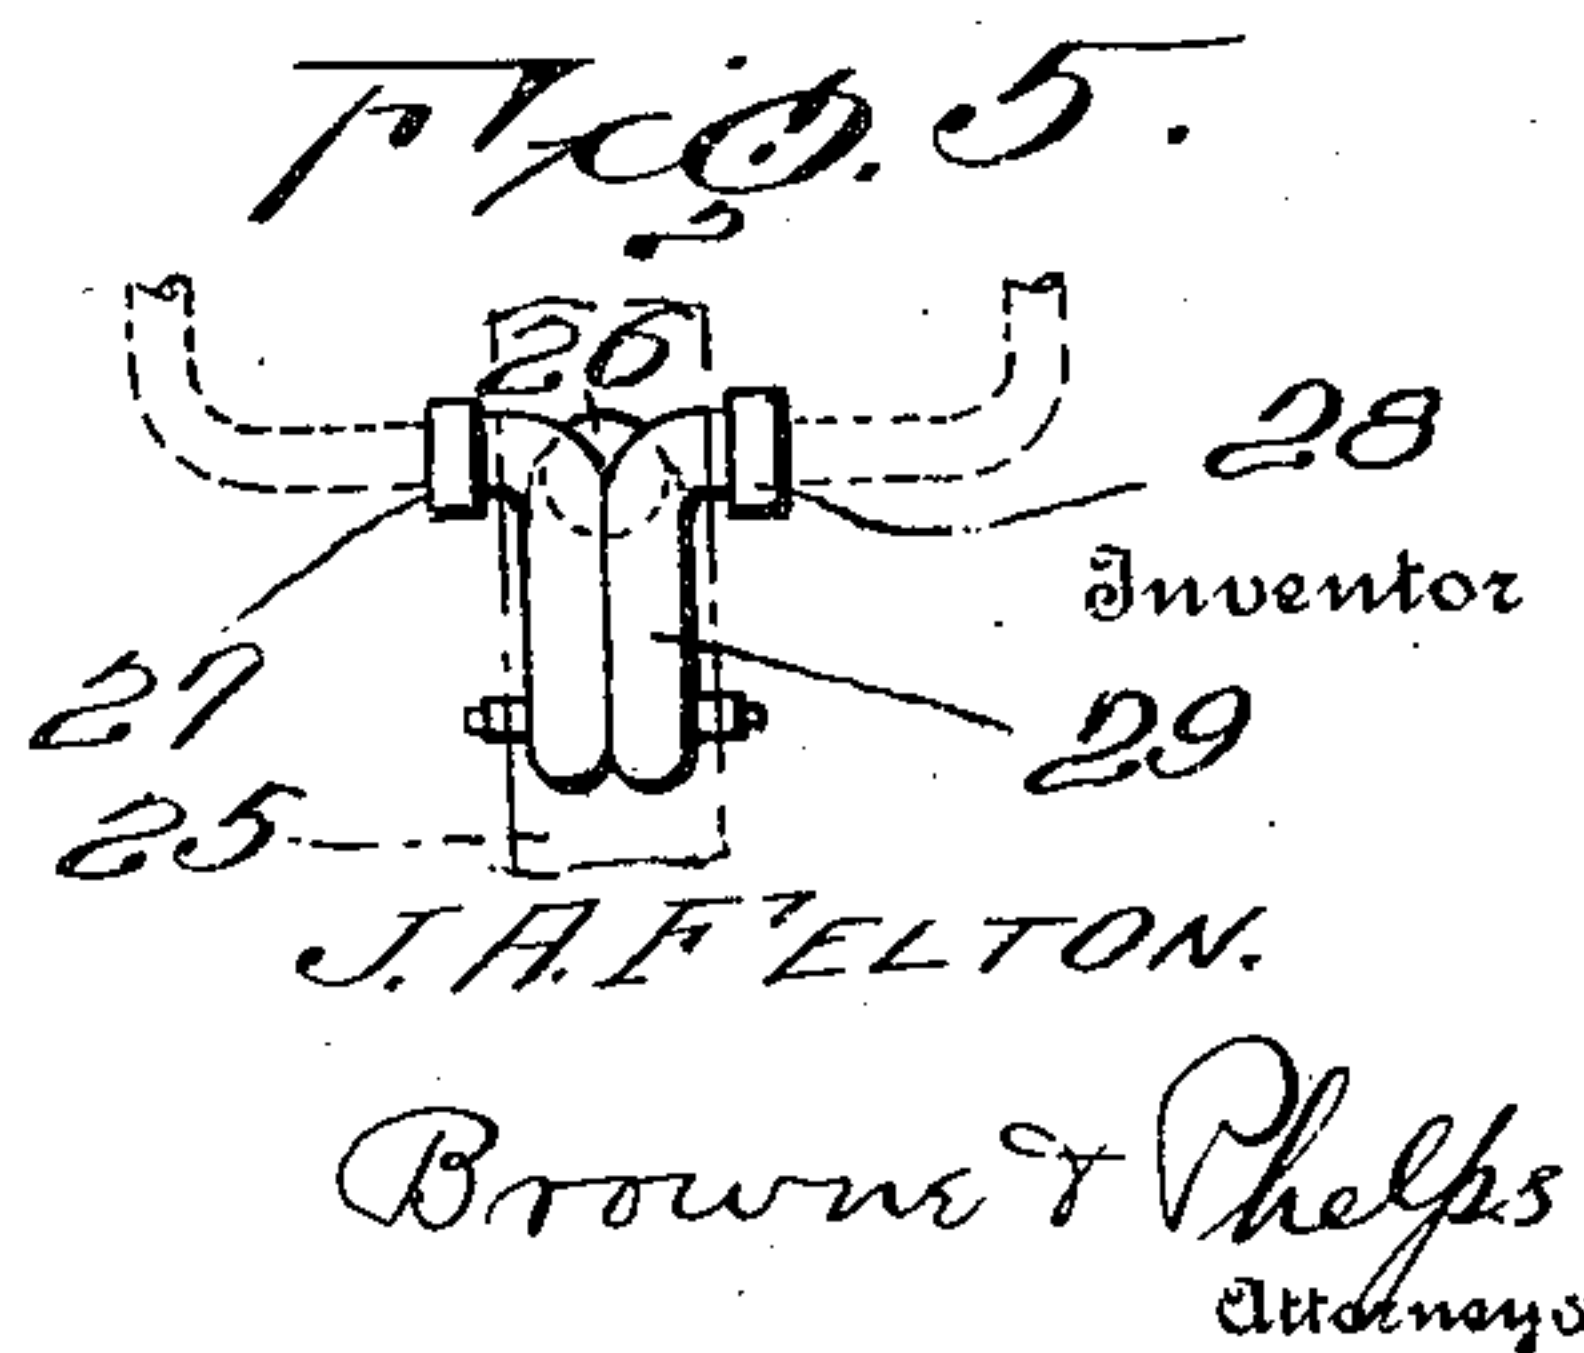 Fig. 5.
26
28
Inventor
27
29
25
J. A. FELTON.
Browne & Phelps
Attorneys